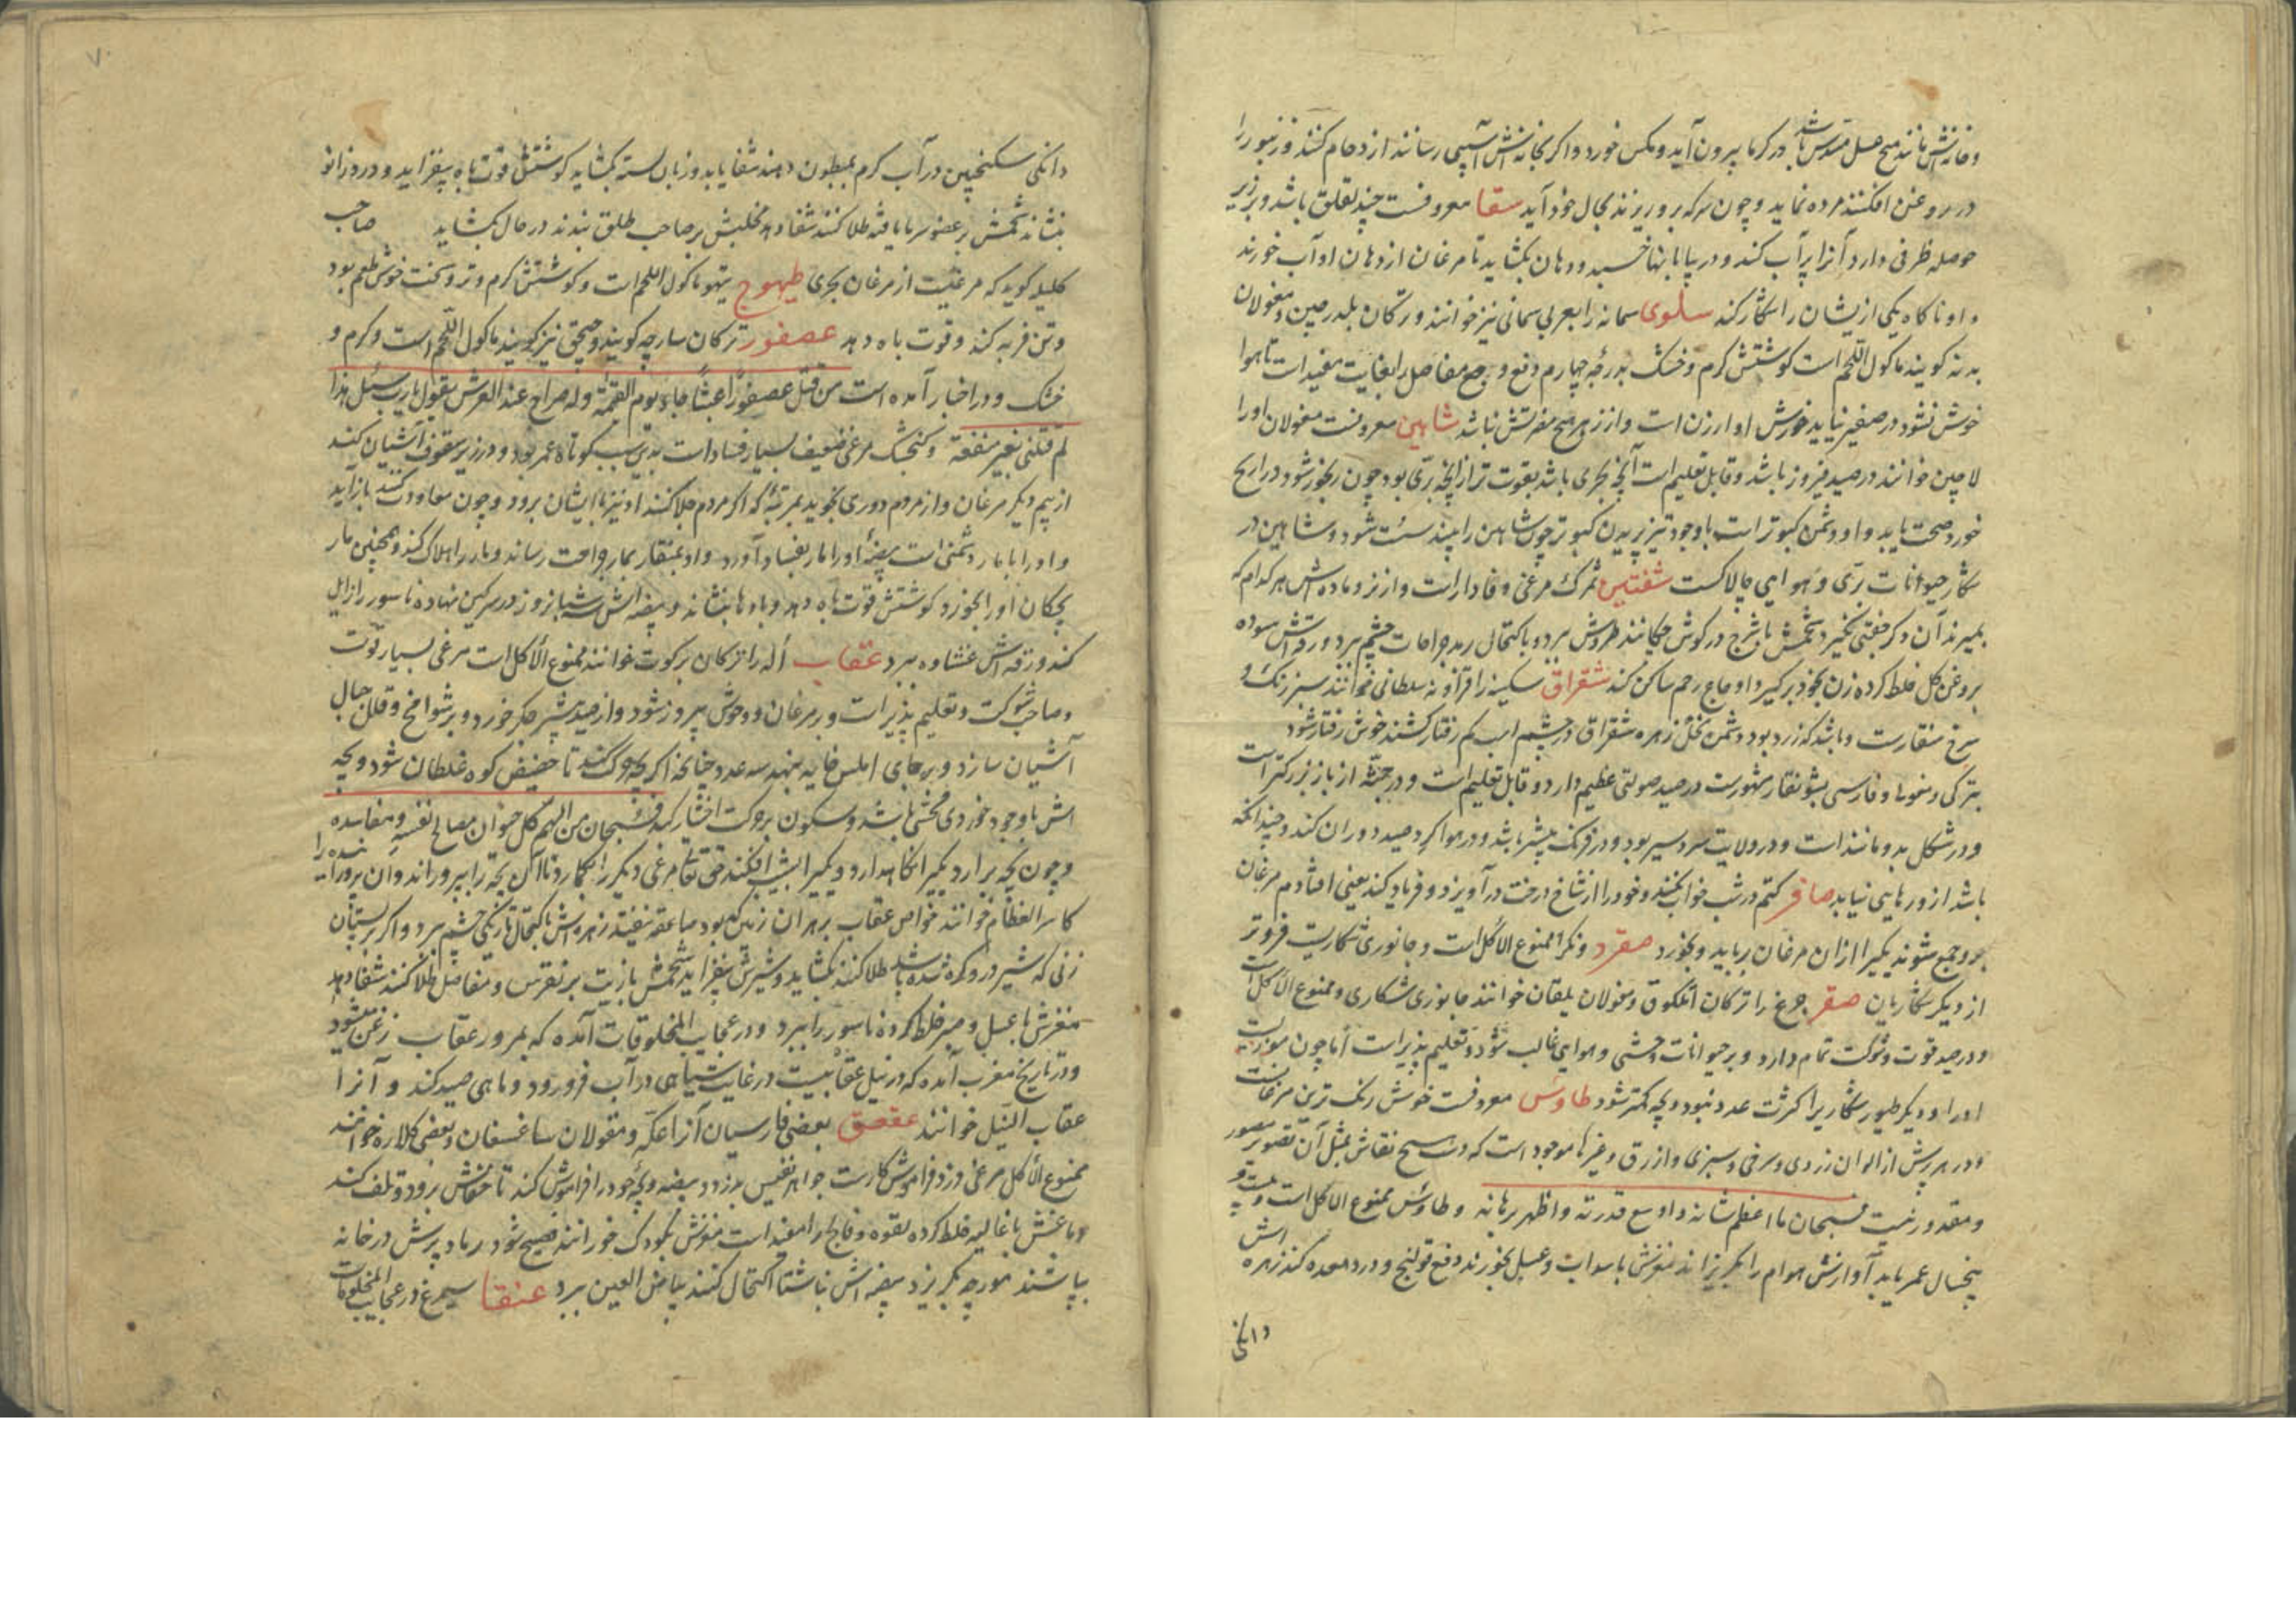 و خانه‌اش مانند صبح عسل مسدس باشد در گرما بیرون آید و مکس خورد و اگر بخانه‌اش آسیبی رسانند ازدحام کنند و زنبور را
در روغن افکنند مرده نماید و چون سرکه برو ریزند بحال خود آید سقا معروفست چند لقلق باشد و بزیر
حوصله ظرفی دارد آنرا پر آب کند و در بیابانها خسبد و دهان بکشاید تا مرغان از دهان او آب خورند
و او ناکاه یکی ازیشان را شکار کند سلوی سمانه را بعربی سمانی نیز خوانند و ترکان بلدرجین و مغولان
بدنه کویند ماکول اللحم است کوشتش کرم و خشک بدرجه چهارم وجع مفاصل را بغایت مفیدات تا هوا
خوش نشود در صفیر نیاید خورش او ارزن است و از زهر هیچ مضرتش نباشد شاهین معروفست مغولان او را
لاجین خوانند در صید فیروز باشد و قابل تعلیم است آنچه بحری باشد بقوت تر از آنچه بری بود چون رنجور شود دراریح
خورد صحت یابد و او دشمن کبوتر است با وجود تیز پریدن کبوتر چون شاهین را بیند سست شود و شاهین در
شکار حیوانات بری و هوایی چالاکست شفنین مرغی وفادار است و از نر و ماده‌اش هر کدام که
بمیرند آن دکر جفتی نکیرد شحمش در کوش چکانند طروش ببرد و باکتحال رمد و جراحات چشم ببرد و زرقتش سوده
بروغن کل خلط کرده زن بخود برکیرد اوجاع رحم ساکن کند شقراق سکینه سلطانی خوانند سبز رنک و
سرخ منقارست و باشد که زرد بود و دشمن نحل زهره شقراق در چشم اسب کم رفتار کشند خوش رفتار شود
بترکی و مغولی و فارسی مشهورست در صید صولتی عظیم دارد و قابل تعلیم است و در جثه از باز بزرکتر است
و در شکل بدو مانند است و در ولایت سردسیر بود و در فرنک بیشتر باشد و در هوا کرد صید دوران کند و چندانکه
باشد از و رهایی نیابد صافر در شب خواب نکند و خود را از شاخ درخت درآویزد و فریاد کند یعنی افتادم مرغان
برو جمع شوند یکی را از ان مرغان برباید و بخورد صرد ممنوع الاکل است و جانوری شکاریست فروتر
از دیکر شکاریان صقر چرغ را ترکان ایتلکو و مغولان بلقان خوانند جانوری شکاری و ممنوع الاکل است
و در صید قوت و شوکت تمام دارد و بر حیوانات وحشی و هوایی غالب شود و تعلیم پذیر است اما چون
او را و دیکر طیور شکاری را کثرت عدد نبود و بچه کمتر شود طاوس معروفست خوش رنک ترین مرغانست
و در هر پرش از الوان زردی و سرخی و سبزی و ازرق و غیرها موجود است که دست هیچ نقاش بمثل آن تصویر مصور
و مقدور نیست فسبحان ما اعظم شانه و اوسع قدرته و اظهر برهانه و طاوس ممنوع الاکل است
پنجسال عمر یابد آوازش هوام را بکریزاند مغزش با سداب و عسل بخورند دفع قولنج و درد معده کند زهره‌اش
دانکی
۷۰
دانکی سکنجبین در آب کرم بمبطون دهند شفا یابد و زبان بسته بکشاید کوشتش قوت باه بیفزاید و درد زانو
بنشاند شحمش بر عضو سرما یافته طلا کنند شفا دهد مخلبش بر صاحب طلق بندند در حال بکشاید صاحب
کلیله کوید که مرغیست از مرغان بحری طیهوج تیهو ماکول اللحم است و کوشتش کرم و تر و سخت خوش طعم بود
و تن فربه کند و قوت باه دهد عصفور ترکان سارچه کویند و جیحق نیز کویند ماکول اللحم است و کرم و
خشک و در اخبار آمده است من قتل عصفورا عبثا جاء یوم القیمة و له صراخ عند العرش یقول یا رب سئل هذا
لم قتلنی بغیر منفعة و کنجشک مرغی ضعیف بسیار فساد است بدین سبب کوتاه عمر بود و در زیر سقوف آشیان کند
از بیم دیکر مرغان و از مردم دوری نجوید بمرتبه که اکر مردم جلا کنند او نیز با ایشان برود و چون معاودت کنند باز آید
و او را با مار دشمنی است بیضه او را مار بفساد آورد و او بمنقار بمار جراحت رساند و مار را هلاک کند و همچنین مار
بچکان او را بخورد و کوشتش قوت باه دهد و بادها بنشاند و بیضه‌اش سه شبانروز در سرکین نهاده ناسور را زایل
کند و زرقه‌اش غشاوه ببرد عقاب اله را ترکان برکوت خوانند ممنوع الاکل است مرغی بسیار قوت
و صاحب شوکت و تعلیم پذیر است و بر مرغان و وحوش پیروز شود و از صید بیشتر جکر خورد و بر شوامخ و قلل جبال
آشیان سازد و بر جای املس خایه بنهد سه عدد چنانچه اکر بچه حرکت کند تا حضیض کوه غلطان شود و بچه
اش با وجود خوردی مخفی باشد و سکون بر حرکت اختیار کند فسبحان من الهم کل حیوان مصالح نفسه و مفاسده
و چون بچه برآرد یکی را نکاهدارد و یکی را بیندازد افکند حق تعالی مرغی دیکر را بکمارد تا آن بچه را بپروراند و آن پرورآینده را
کاسر العظام خوانند خواص عقاب بر هر آن زمین که بود صاعقه نیفتد زهره‌اش باکتحال تاریکی چشم ببرد و اکر بر پستان
زنی که شیر درو کره شده باشد طلا کنند بکشاید و شیرش بیفزاید شحمش با زیت بر نقرس و مفاصل طلا کنند شفا دهد
مغزش با عسل و صبر خلط کرده ناسور را ببرد و در عجایب المخلوقات آمده که بمرور عقاب زغن میشود
و در تاریخ مغرب آمده که در نیل عقابیست در غایت سیاهی در آب فرو رود و ماهی صید کند و آنرا
عقاب النیل خوانند عقعق بعضی فارسیان آنرا عکه و مغولان ساغسغان و بعضی کلاژه خوانند
ممنوع الاکل مرغی دزد فراموشکارست جواهر نفیس بدزدد و بیضه و بچه خود را فراموش کند تا برود و تلف کند
دماغش با غالیه خلط کرده لقوه و فالج را مفید است مغزش بکودک خورانند فصیح شود رماد پرش در خانه
بپاشند مورچه بکریزد بیضه‌اش ناشتا اکتحال کنند بیاض العین ببرد عنقا سیمرغ در عجایب المخلوقات